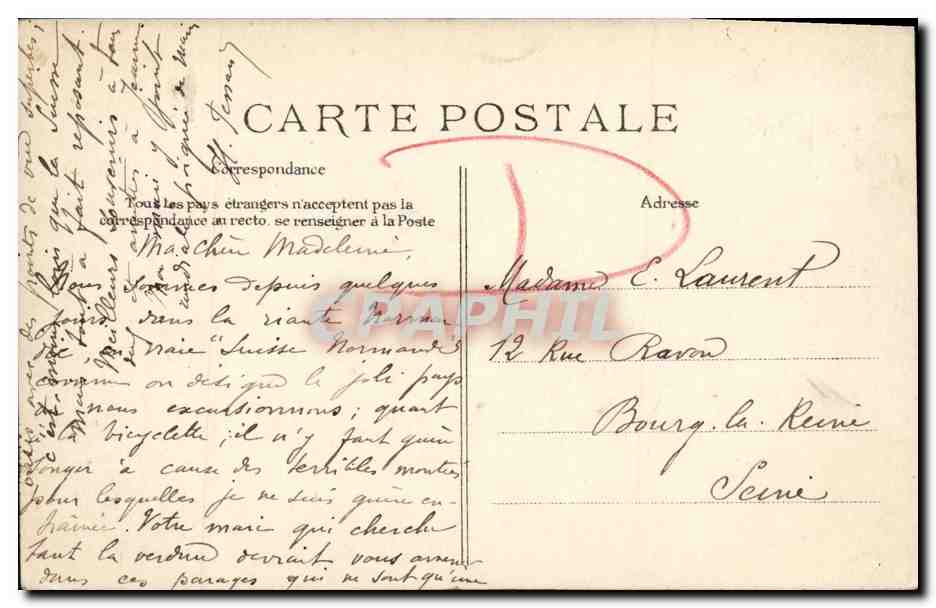 CARTE POSTALE
Correspondance
Tous les pays étrangers n'acceptent pas la
correspondance au recto. se renseigner à la Poste
Adresse
Ma chère Madeleine,
Nous sommes depuis quelques
jours dans la riante Norman
die vraie "Suisse Normande"
comme on désigne le joli pays
où nous excursionnons; quant
à la bicyclette, il n'y faut guère
songer à cause des terribles montées
pour lesquelles je ne suis guère en-
trainée. Votre mari qui cherche
tant la verdure devrait vous amener
dans ces parages qui ne sont qu'une
oasis avec des points de vue superbes;
c'est moins que la Suisse
mais tout à fait reposant.
Meilleurs souvenirs à tous
deux et amitiés à Jeanne
mon mari y joint
poignée de main
Madame E. Laurent
12 Rue Ravon
Bourg-la-Reine
Seine
CPAPHIL